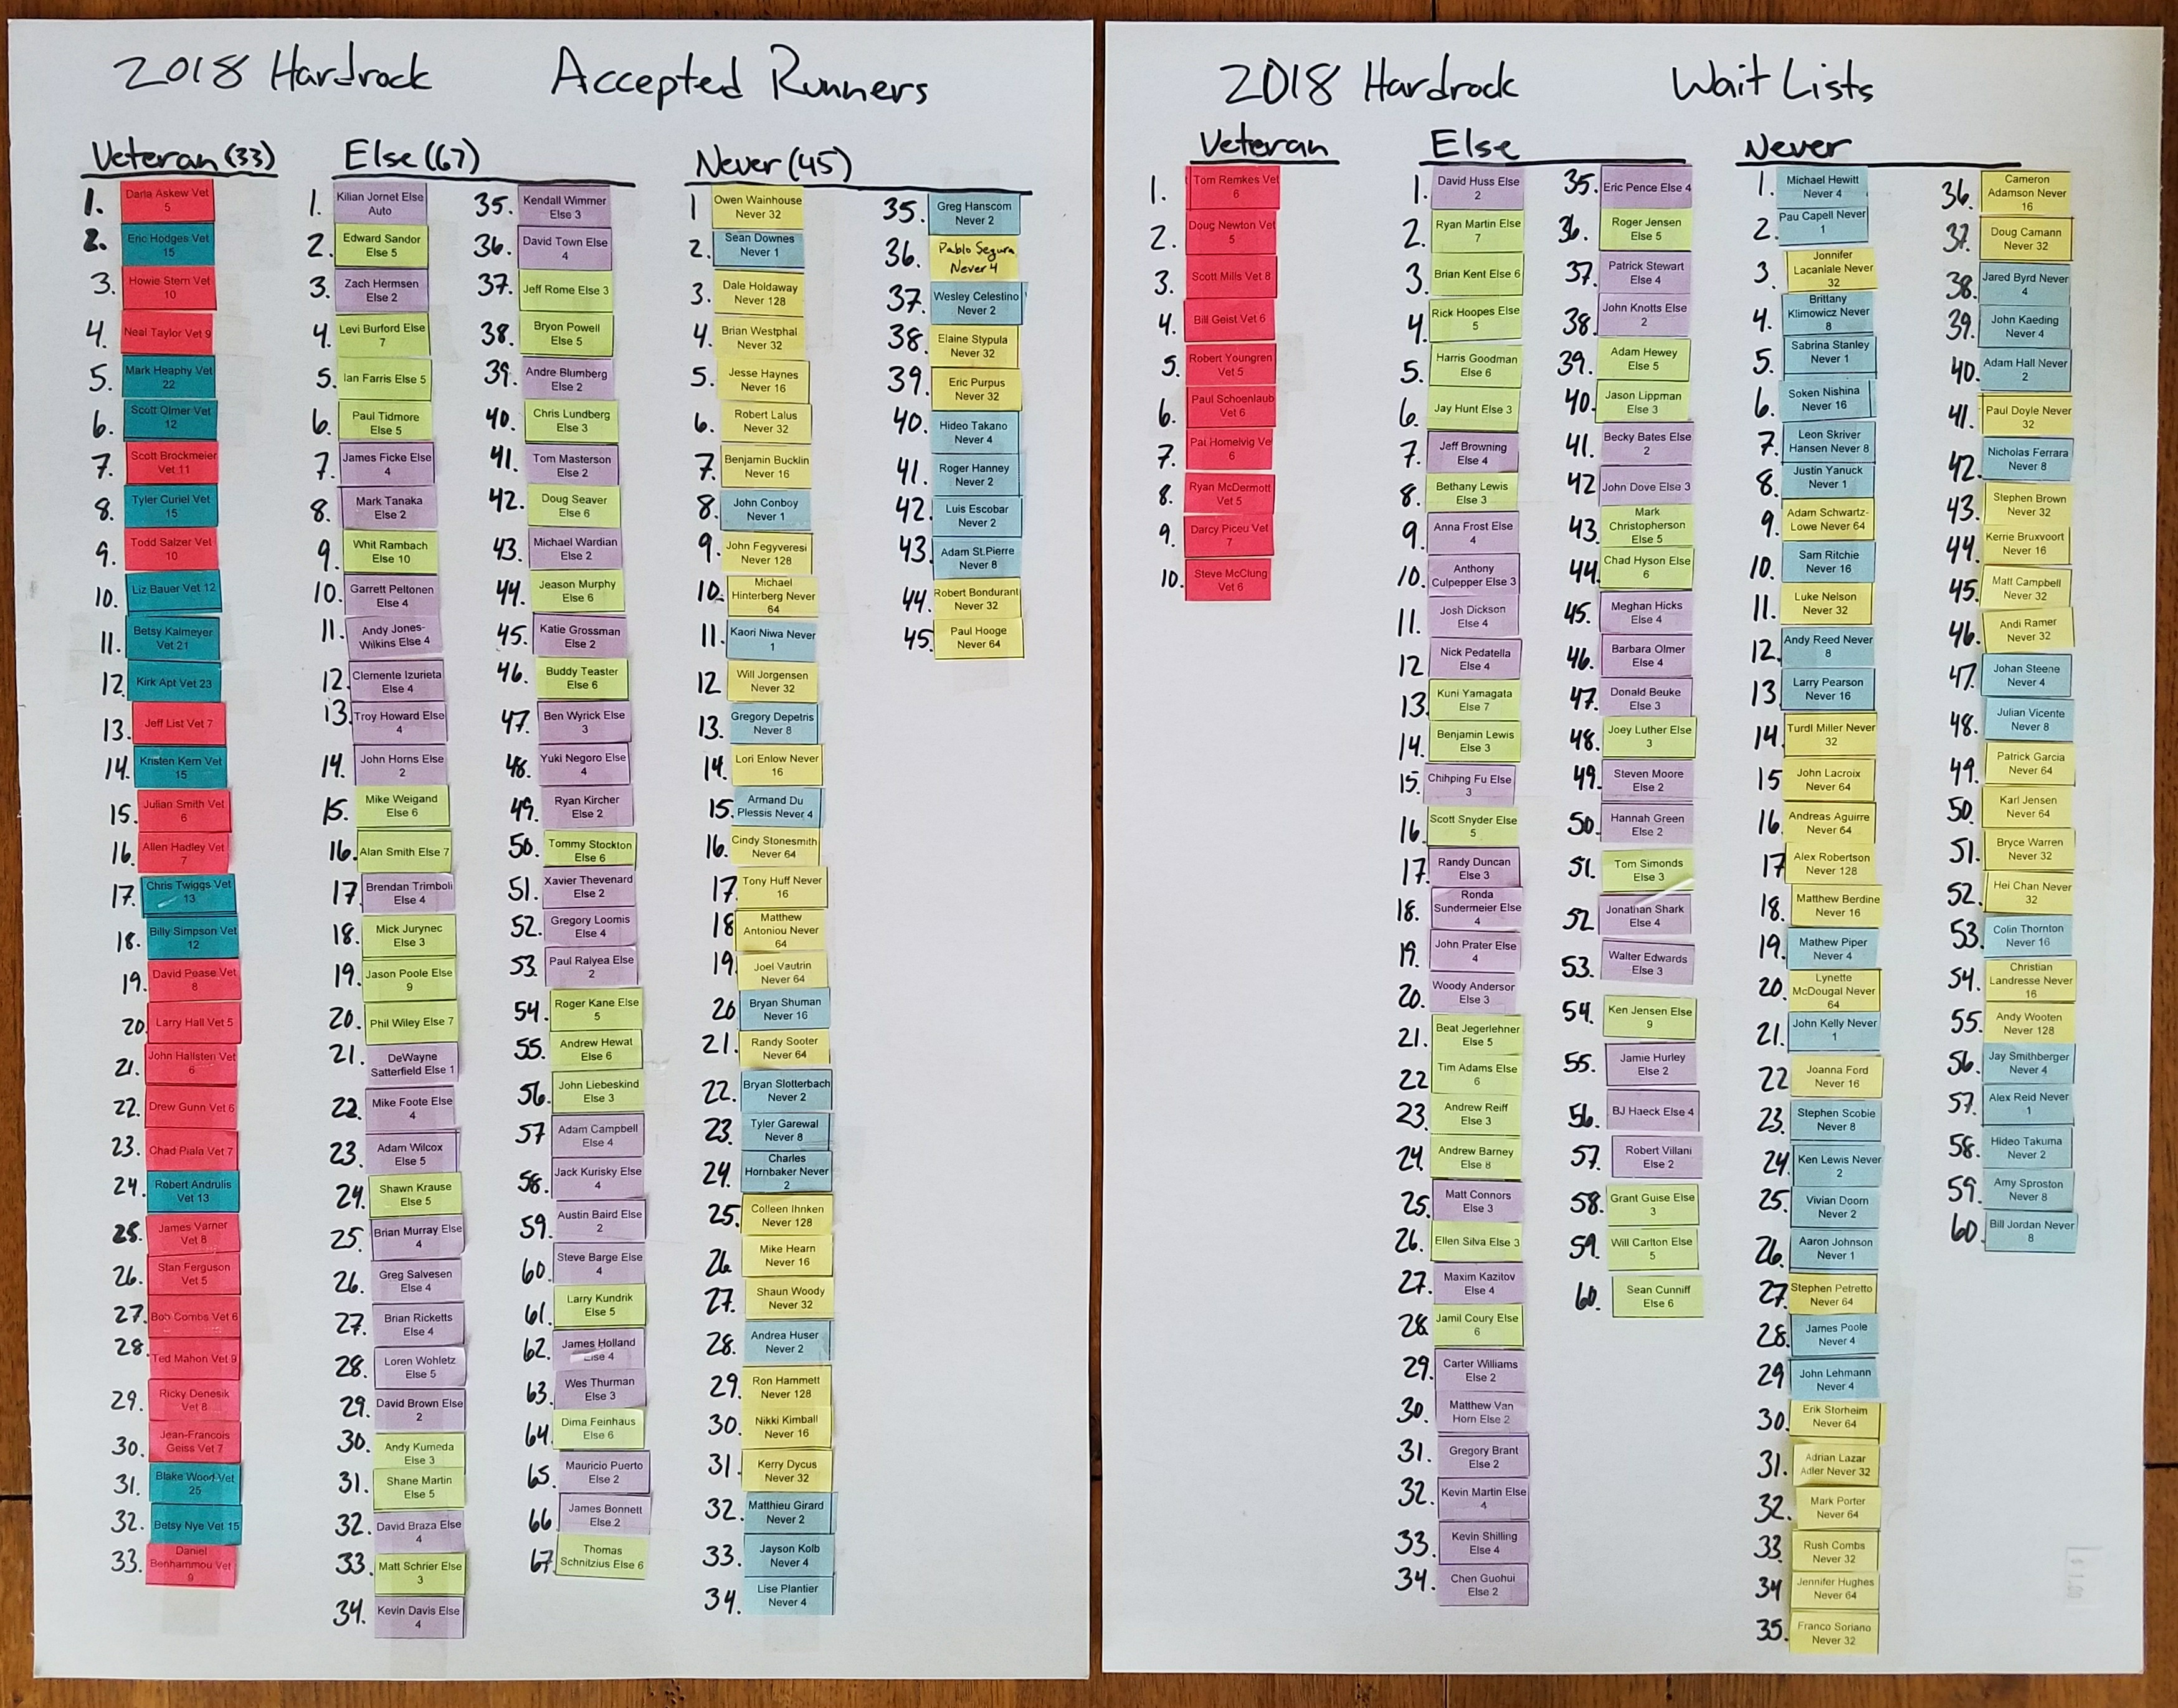 2018 Hardrock Accepted Runners
Veteran (33)
1. Darla Askew Vet
5
2. Eric Hodges Vet
15
3. Howie Stern Vet
10
4. Neal Taylor Vet 9
5. Mark Heaphy Vet
22
6. Scott Olmer Vet
12
7. Scott Brockmeier
Vet 11
8. Tyler Curiel Vet
15
9. Todd Salzer Vet
10
10. Liz Bauer Vet 12
11. Betsy Kalmeyer
Vet 21
12. Kirk Apt Vet 23
13. Jeff List Vet 7
14. Kristen Kern Vet
15
15. Julian Smith Vet
6
16. Allen Hadley Vet
7
17. Chris Twiggs Vet
13
18. Billy Simpson Vet
12
19. David Pease Vet
8
20. Larry Hall Vet 5
21. John Hallsten Vet
6
22. Drew Gunn Vet 6
23. Chad Piala Vet 7
24. Robert Andrulis
Vet 13
25. James Varner
Vet 8
26. Stan Ferguson
Vet 5
27. Bob Combs Vet 6
28. Ted Mahon Vet 9
29. Ricky Denesik
Vet 8
30. Jean-Francois
Geiss Vet 7
31. Blake Wood Vet
25
32. Betsy Nye Vet 15
33. Daniel
Benhammou Vet
9
Else (67)
1. Kilian Jornet Else
Auto
2. Edward Sandor
Else 5
3. Zach Hermsen
Else 2
4. Levi Burford Else
7
5. Ian Farris Else 5
6. Paul Tidmore
Else 5
7. James Ficke Else
4
8. Mark Tanaka
Else 2
9. Whit Rambach
Else 10
10. Garrett Peltonen
Else 4
11. Andy Jones-
Wilkins Else 4
12. Clemente Izurieta
Else 4
13. Troy Howard Else
4
14. John Horns Else
2
15. Mike Weigand
Else 6
16. Alan Smith Else 7
17. Brendan Trimboli
Else 4
18. Mick Jurynec
Else 3
19. Jason Poole Else
9
20. Phil Wiley Else 7
21. DeWayne
Satterfield Else 1
22. Mike Foote Else
4
23. Adam Wilcox
Else 5
24. Shawn Krause
Else 5
25. Brian Murray Else
4
26. Greg Salvesen
Else 4
27. Brian Ricketts
Else 4
28. Loren Wohletz
Else 5
29. David Brown Else
2
30. Andy Kumeda
Else 3
31. Shane Martin
Else 5
32. David Braza Else
4
33. Matt Schrier Else
3
34. Kevin Davis Else
4
35. Kendall Wimmer
Else 3
36. David Town Else
4
37. Jeff Rome Else 3
38. Bryon Powell
Else 5
39. Andre Blumberg
Else 2
40. Chris Lundberg
Else 3
41. Tom Masterson
Else 2
42. Doug Seaver
Else 6
43. Michael Wardian
Else 2
44. Jeason Murphy
Else 6
45. Katie Grossman
Else 2
46. Buddy Teaster
Else 6
47. Ben Wyrick Else
3
48. Yuki Negoro Else
4
49. Ryan Kircher
Else 2
50. Tommy Stockton
Else 6
51. Xavier Thevenard
Else 2
52. Gregory Loomis
Else 4
53. Paul Ralyea Else
2
54. Roger Kane Else
5
55. Andrew Hewat
Else 6
56. John Liebeskind
Else 3
57 Adam Campbell
Else 4
58. Jack Kurisky Else
4
59. Austin Baird Else
2
60. Steve Barge Else
4
61. Larry Kundrik
Else 5
62. James Holland
Else 4
63. Wes Thurman
Else 3
64. Dima Feinhaus
Else 6
65. Mauricio Puerto
Else 2
66 James Bonnett
Else 2
67. Thomas
Schnitzius Else 6
Never (45)
1 Owen Wainhouse
Never 32
2. Sean Downes
Never 1
3. Dale Holdaway
Never 128
4. Brian Westphal
Never 32
5. Jesse Haynes
Never 16
6. Robert Lalus
Never 32
7. Benjamin Bucklin
Never 16
8. John Conboy
Never 1
9. John Fegyveresi
Never 128
10. Michael
Hinterberg Never
64
11. Kaori Niwa Never
1
12 Will Jorgensen
Never 32
13. Gregory Depetris
Never 8
14. Lori Enlow Never
16
15. Armand Du
Plessis Never 4
16. Cindy Stonesmith
Never 64
17. Tony Huff Never
16
18 Matthew
Antoniou Never
64
19. Joel Vautrin
Never 64
20 Bryan Shuman
Never 16
21. Randy Sooter
Never 64
22. Bryan Slotterbach
Never 2
23. Tyler Garewal
Never 8
24. Charles
Hornbaker Never
2
25. Colleen Ihnken
Never 128
26. Mike Hearn
Never 16
27. Shaun Woody
Never 32
28. Andrea Huser
Never 2
29. Ron Hammett
Never 128
30. Nikki Kimball
Never 16
31. Kerry Dycus
Never 32
32. Matthieu Girard
Never 2
33. Jayson Kolb
Never 4
34. Lise Plantier
Never 4
35. Greg Hanscom
Never 2
36. Pablo Segura
Never 4
37. Wesley Celestino
Never 2
38. Elaine Stypula
Never 32
39. Eric Purpus
Never 32
40. Hideo Takano
Never 4
41. Roger Hanney
Never 2
42. Luis Escobar
Never 2
43. Adam St.Pierre
Never 8
44. Robert Bondurant
Never 32
45. Paul Hooge
Never 64
2018 Hardrock Wait Lists
Veteran
1. Tom Remkes Vet
6
2. Doug Newton Vet
5
3. Scott Mills Vet 8
4. Bill Geist Vet 6
5. Robert Youngren
Vet 5
6. Paul Schoenlaub
Vet 6
7. Pat Homelvig Ve
6
8. Ryan McDermott
Vet 5
9. Darcy Piceu Vet
7
10. Steve McClung
Vet 6
Else
1. David Huss Else
2
2. Ryan Martin Else
7
3. Brian Kent Else 6
4. Rick Hoopes Else
5
5. Harris Goodman
Else 6
6. Jay Hunt Else 3
7. Jeff Browning
Else 4
8. Bethany Lewis
Else 3
9. Anna Frost Else
4
10. Anthony
Culpepper Else 3
11. Josh Dickson
Else 4
12 Nick Pedatella
Else 4
13. Kuni Yamagata
Else 7
14. Benjamin Lewis
Else 3
15. Chihping Fu Else
3
16. Scott Snyder Else
5
17. Randy Duncan
Else 3
18. Ronda
Sundermeier Else
4
19. John Prater Else
4
20. Woody Anderson
Else 3
21. Beat Jegerlehner
Else 5
22 Tim Adams Else
6
23. Andrew Reiff
Else 3
24. Andrew Barney
Else 8
25. Matt Connors
Else 3
26. Ellen Silva Else 3
27. Maxim Kazitov
Else 4
28. Jamil Coury Else
6
29. Carter Williams
Else 2
30. Matthew Van
Horn Else 2
31. Gregory Brant
Else 2
32. Kevin Martin Else
4
33. Kevin Shilling
Else 4
34. Chen Guohui
Else 2
35. Eric Pence Else 4
36. Roger Jensen
Else 5
37. Patrick Stewart
Else 4
38. John Knotts Else
2
39. Adam Hewey
Else 5
40. Jason Lippman
Else 3
41. Becky Bates Else
2
42 John Dove Else 3
43. Mark
Christopherson
Else 5
44. Chad Hyson Else
6
45. Meghan Hicks
Else 4
46. Barbara Olmer
Else 4
47. Donald Beuke
Else 3
48. Joey Luther Else
3
49. Steven Moore
Else 2
50. Hannah Green
Else 2
51. Tom Simonds
Else 3
52 Jonathan Shark
Else 4
53. Walter Edwards
Else 3
54. Ken Jensen Else
9
55. Jamie Hurley
Else 2
56. BJ Haeck Else 4
57. Robert Villani
Else 2
58. Grant Guise Else
3
59. Will Carlton Else
5
60. Sean Cunniff
Else 6
Never
1. Michael Hewitt
Never 4
2. Pau Capell Never
1
3. Jonnifer
Lacanlale Never
32
4. Brittany
Klimowicz Never
8
5. Sabrina Stanley
Never 1
6. Soken Nishina
Never 16
7. Leon Skriver
Hansen Never 8
8. Justin Yanuck
Never 1
9. Adam Schwartz-
Lowe Never 64
10. Sam Ritchie
Never 16
11. Luke Nelson
Never 32
12. Andy Reed Never
8
13. Larry Pearson
Never 16
14. Turdl Miller Never
32
15 John Lacroix
Never 64
16. Andreas Aguirre
Never 64
17 Alex Robertson
Never 128
18. Matthew Berdine
Never 16
19. Mathew Piper
Never 4
20. Lynette
McDougal Never
64
21. John Kelly Never
1
22 Joanna Ford
Never 16
23. Stephen Scobie
Never 8
24. Ken Lewis Never
2
25. Vivian Doorn
Never 2
26. Aaron Johnson
Never 1
27. Stephen Petretto
Never 64
28. James Poole
Never 4
29 John Lehmann
Never 4
30. Erik Storheim
Never 64
31. Adrian Lazar
Adler Never 32
32. Mark Porter
Never 64
33. Rush Combs
Never 32
34 Jennifer Hughes
Never 64
35. Franco Soriano
Never 32
36. Cameron
Adamson Never
16
37. Doug Camann
Never 32
38. Jared Byrd Never
4
39. John Kaeding
Never 4
40. Adam Hall Never
2
41. Paul Doyle Never
32
42. Nicholas Ferrara
Never 8
43. Stephen Brown
Never 32
44. Kerrie Bruxvoort
Never 16
45. Matt Campbell
Never 32
46. Andi Ramer
Never 32
47. Johan Steene
Never 4
48. Julian Vicente
Never 8
49. Patrick Garcia
Never 64
50. Karl Jensen
Never 64
51. Bryce Warren
Never 32
52. Hei Chan Never
32
53. Colin Thornton
Never 16
54. Christian
Landresse Never
16
55. Andy Wooten
Never 128
56. Jay Smithberger
Never 4
57. Alex Reid Never
1
58. Hideo Takuma
Never 2
59. Amy Sproston
Never 8
60. Bill Jordan Never
8